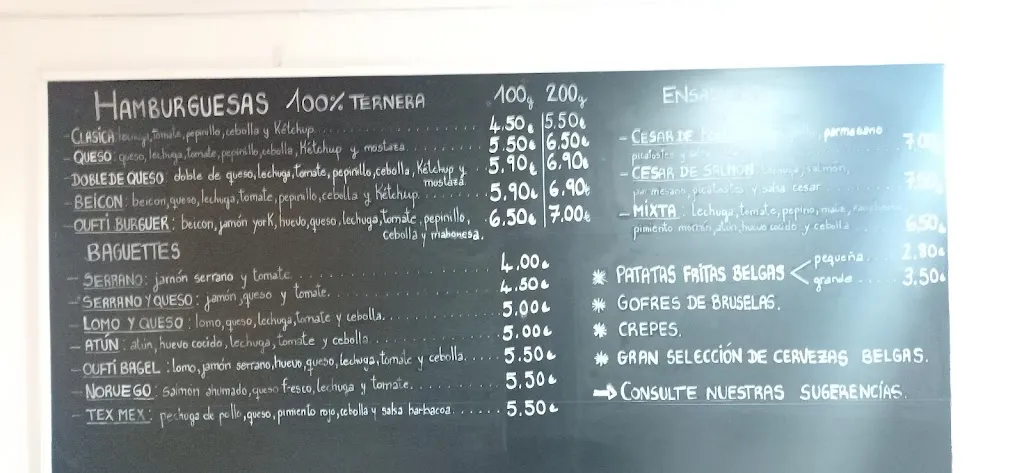 HAMBURGUESAS 100% TERNERA 100g 200g
- CLASICA: lechuga, tomate, pepinillo, cebolla y Kétchup 4.50€ 5.50€
- QUESO: queso, lechuga, tomate, pepinillo, cebolla, Kétchup y mostaza 5.50€ 6.50€
- DOBLE DE QUESO: doble de queso, lechuga, tomate, pepinillo, cebolla, Kétchup y mostaza 5.90€ 6.90€
- BEICON: beicon, queso, lechuga, tomate, pepinillo, cebolla y Kétchup 5.90€ 6.90€
- OUFTI BURGUER: beicon, jamón york, huevo, queso, lechuga, tomate, pepinillo, 6.50€ 7.00€
cebolla y mahonesa.
BAGUETTES
- SERRANO: jamón serrano y tomate 4.00€
- SERRANO Y QUESO: jamón, queso y tomate 4.50€
- LOMO Y QUESO: lomo, queso, lechuga, tomate y cebolla 5.00€
- ATÚN: atún, huevo cocido, lechuga, tomate y cebolla 5.00€
- OUFTI BAGEL: lomo, jamón serrano, huevo, queso, lechuga, tomate y cebolla 5.50€
- NORUEGO: salmon ahumado, queso fresco, lechuga y tomate 5.50€
- TEX MEX: pechuga de pollo, queso, pimiento rojo, cebolla y salsa barbacoa 5.50€
- CESAR DE parmesano
picatostes y
- CESAR DE SALMON: lechuga, salmón,
parmesano, picatostes y salsa cesar
- MIXTA: Lechuga, tomate, pepino, maiz,
pimiento morron, atún, huevo cocido y cebolla 6.50€
* PATATAS FRITAS BELGAS < pequeña 2.80€
grande 3.50€
* GOFRES DE BRUSELAS.
* CREPES.
* GRAN SELECCIÓN DE CERVEZAS BELGAS.
→ CONSULTE NUESTRAS SUGERENCÍAS.